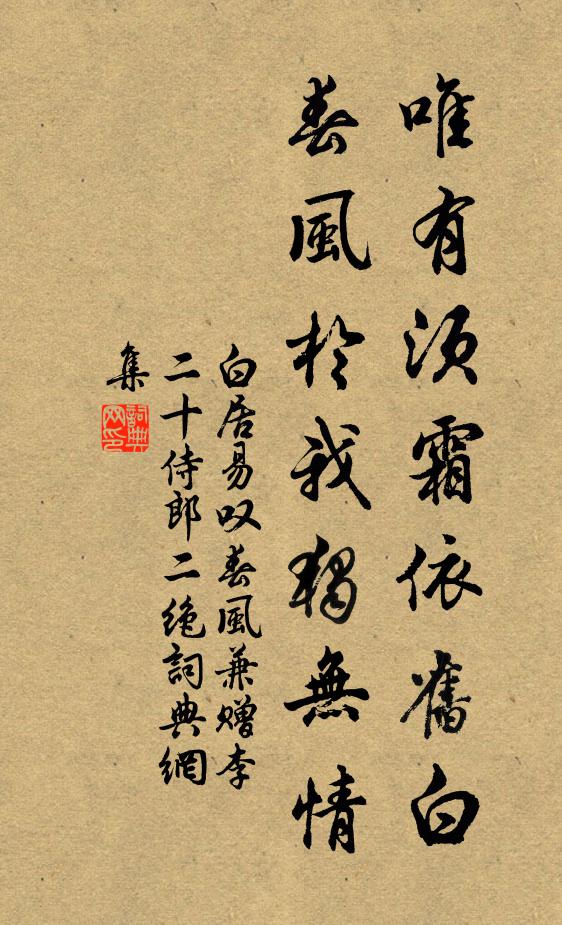 唯有須霜依舊白
春風於我獨無情
白居易叹春風兼贈李
二十侍郎二絶詞典網
集
詞典网印